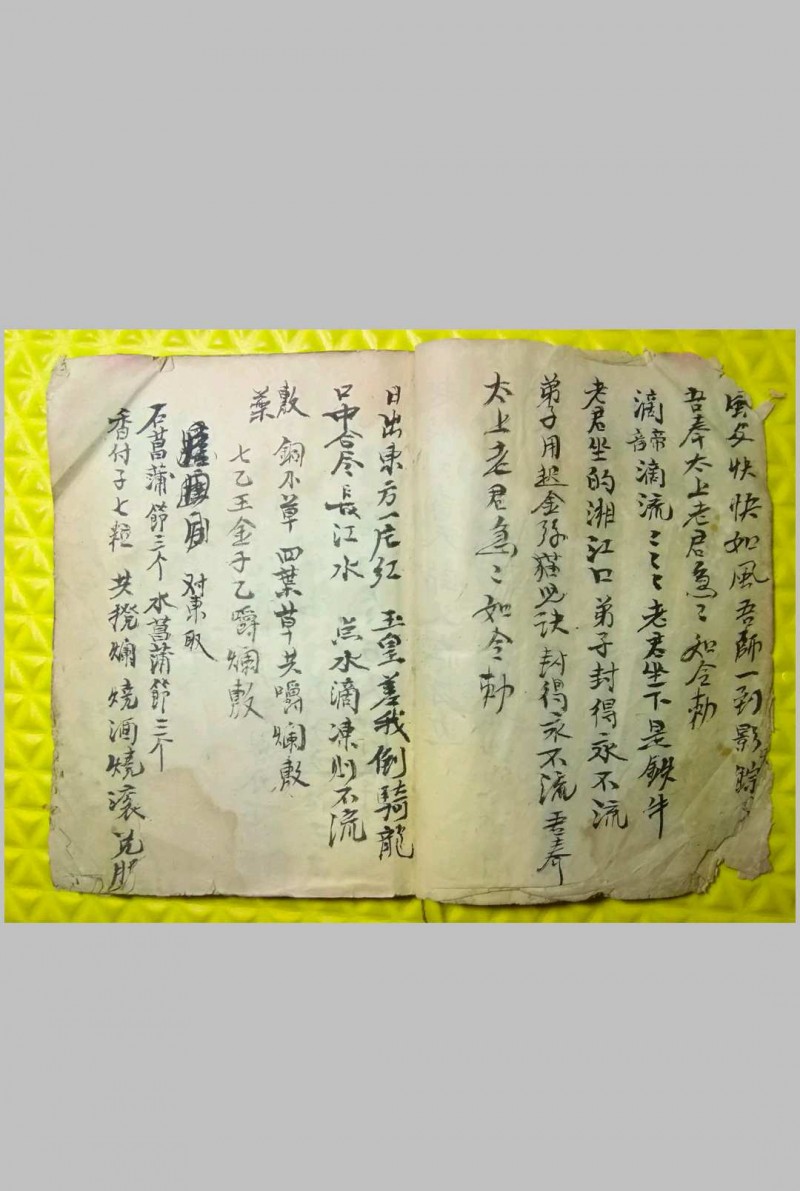 快快如風吾師一到影踪
吾奉太上老君急〻如令勅
滴滴流〻〻〻老君坐下是鉄牛
諦
老君坐的湘江口弟子封得永不流
弟子用起金貓訣封得永不流吾奉
太上老君急〻如令勅
日出東方一点红玉皇差我倒騎龍
口中含尽長江水点水滴凍則不流
敷銅不草四葉草共嚼爛敷
藥
七乙王金子乙嚼爛敷
对東取
石菖蒲節三个水菖蒲節三个
香付子七粒共爛燒酒燒滚